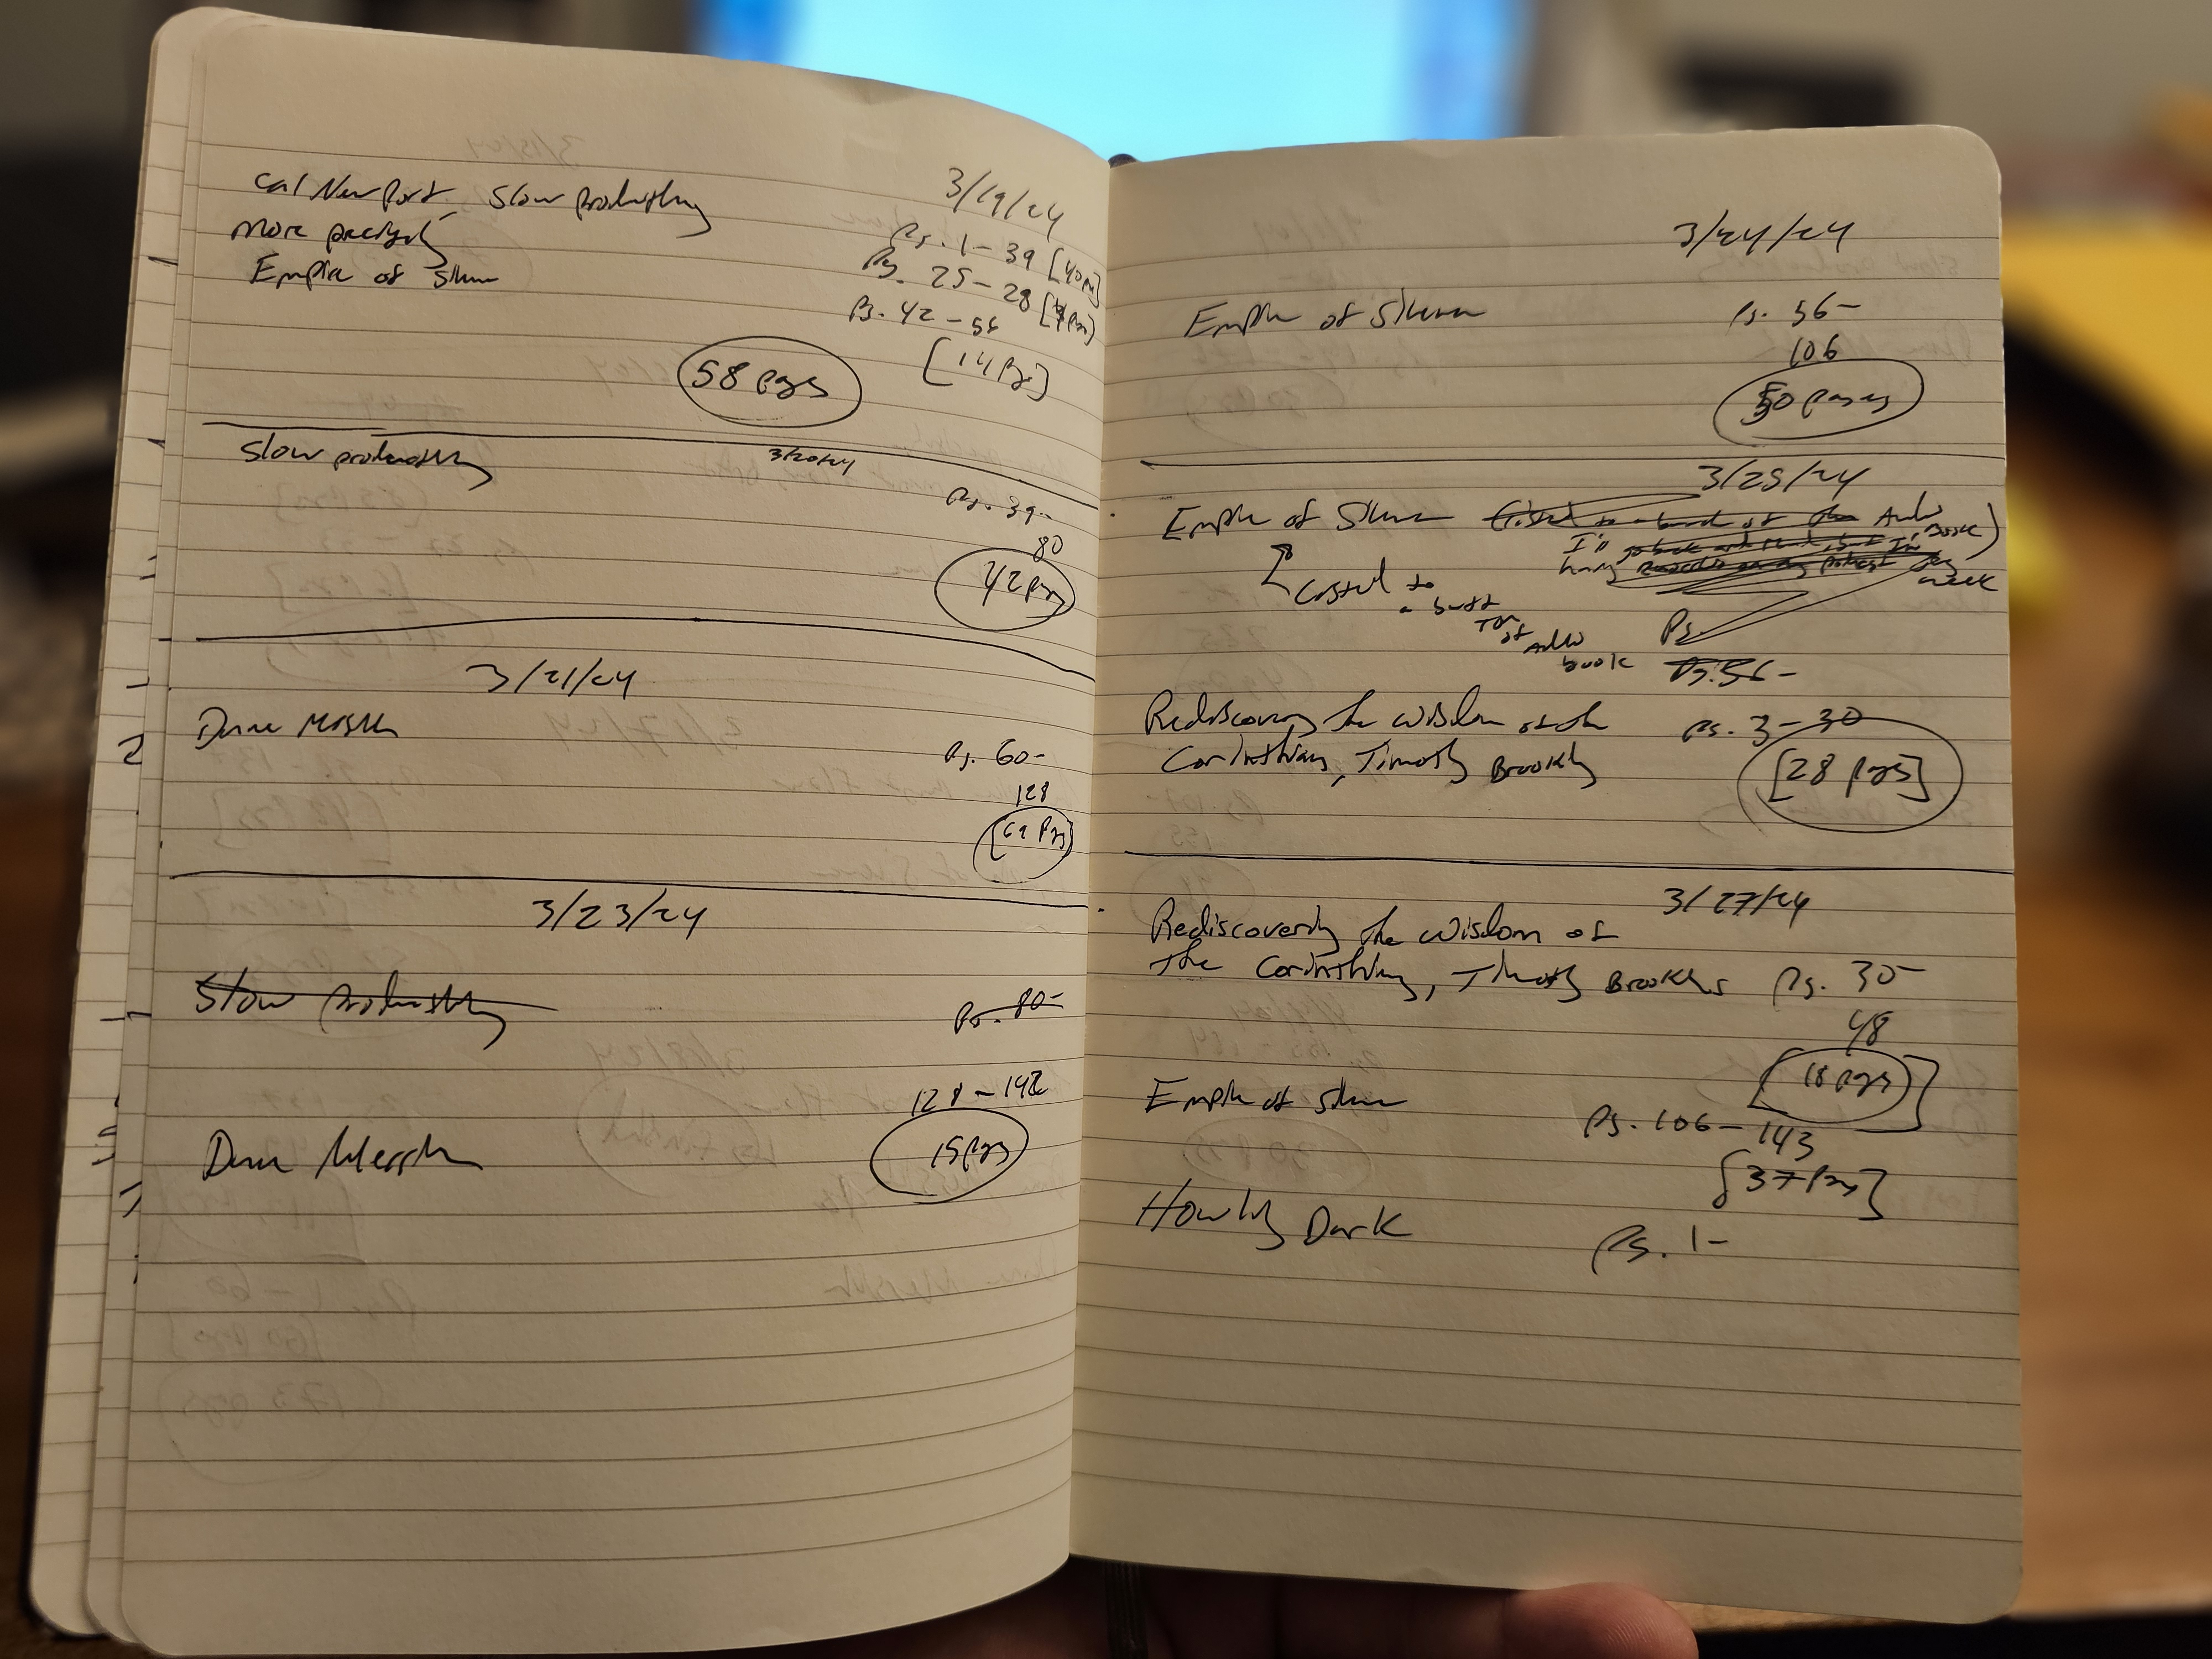 3/19/24
Cal Newport, Slow Productivity Pg. 1-39 [40pgs]
More precisely Pg. 25-28 [4pgs]
Empire of Silence Pg. 42-56
[14 Pgs]
58 pages
3/20/24
Slow productivity
Pg. 39-
80
42 pgs
3/21/24
Dune Messiah
Pg. 60-
128
[69 Pgs]
3/23/24
Slow Productivity Pg. 80-
128-142
Dune Messiah
15 pgs
3/24/24
Empire of Silence Pg. 56-
106
50 pages
3/25/24
Empire of Silence (listened to a bunch of the Audio
book)
I'll go back and but I'm
having on my podcast
week
Listened to
a butt
Ton
of
Audio
book
Pg.
Pg. 56-
Rediscovering the wisdom of the Pg. 3-30
Corinthians, Timothy Brookins
[28 pages]
3/27/24
Rediscovering the wisdom of
The Corinthians, Timothy Brookins Pg. 30-
48
[18 pgs]
Empire of Silence
Pg. 106-143
[37 Pgs]
Howling Dark
Pg. 1-